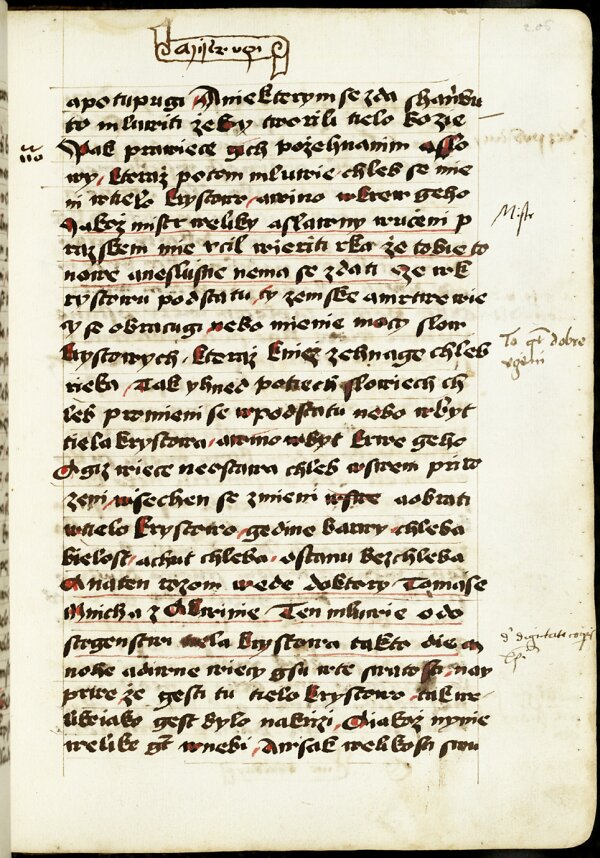 205
apotupugi A niekterym se zda
to mluwiti zeby tworili tielo bozie
Pak prawiece gich pozehnanim a slo
wy, kteraz potom mluwie chleb se mie
ni w tielo krystowo, a wino w krew geho
Jakoz mistr weliky a slawny w uceni p
razskem mie ucil wieriti rka ze tobie to
nowe a neslusne nema se zdati
rystowu podstatu, ty zemske a mrtwe wie
cy se obracugi, nebo mienie mocy slow
krystowych, kteraz kniez zehnage chleb
rieka, Tak yhned po tiech slowiech ch
leb promieni se w podstatu nebo w byt
tiela krystowa, a wino w byt krwe geho
A giz wiece neostawa chleb w swem priro
zeni, wsechen se zmieni a obrati
w tielo krystowo, gedine barwy chleba
bielost, a chut chleba, ostanu bez chleba
A na ten rozom wede doktory Tomase
Mnicha z Akwinie Ten mluwie o do
stogenstwi tiela krystowa takto die
nohe a diwne wiecy gsu w te swatosti, nay
prwe, ze gest tu tielo krystowo, tak we
like iako gest bylo na krizi, A iakoz nynie
welike gest w nebi, A wsak welikosti swu
Mistr
To dobre